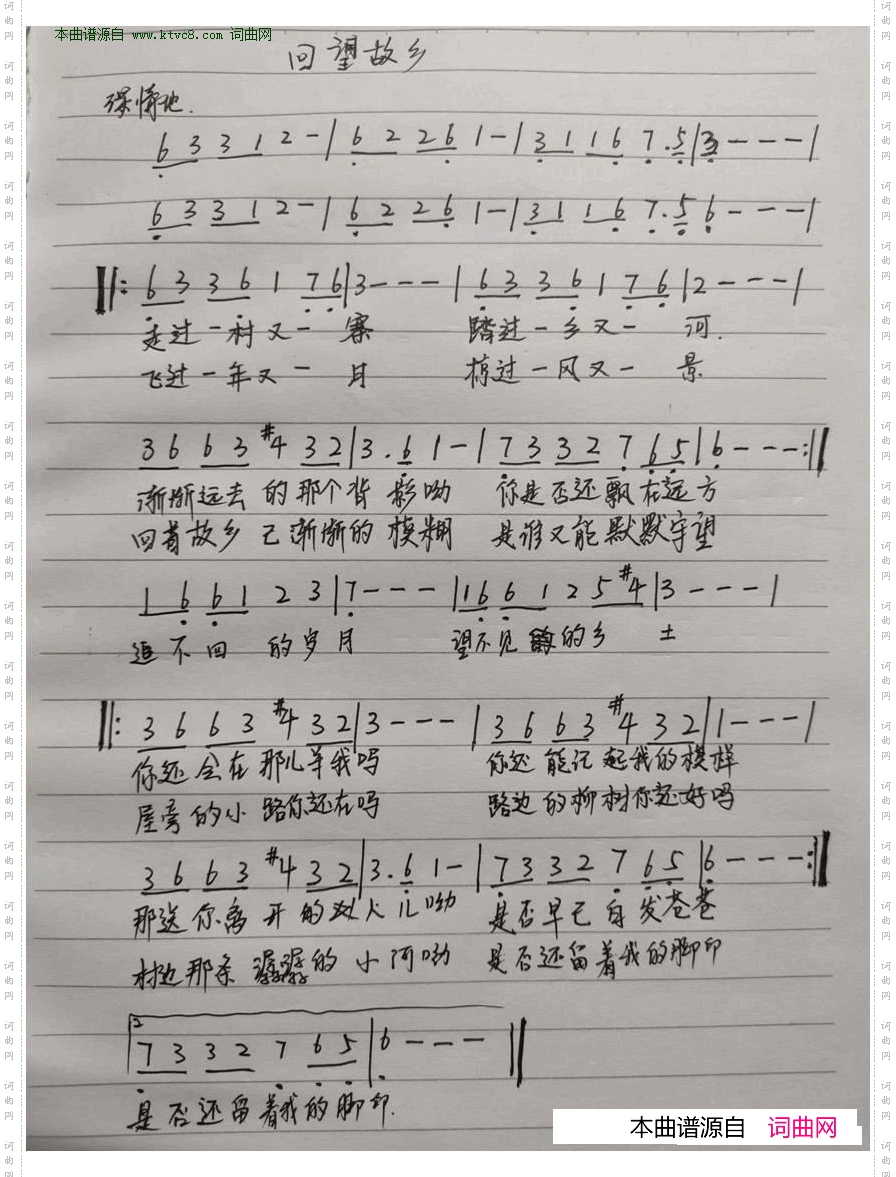 本曲谱源自 www.ktvc8.com 词曲网
回望故乡
深情地.
6 3 3 1 2 - | 6 2 2 6 1 - | 3 1 1 6 7 . 5 | 3 - - - |
6 3 3 1 2 - | 6 2 2 6 1 - | 3 1 1 6 7 . 5 6 - - - |
‖: 6 3 3 6 1 7 6 | 3 - - - | 6 3 3 6 1 7 6 | 2 - - - |
走过一村又一寨 踏过一乡又一河.
飞过一年又一月 掠过一风又一景
3 6 6 3 #4 3 2 | 3 . 6 1 - | 7 3 3 2 7 6 5 | 6 - - - :‖
渐渐远去的那个背影呦 你是否还飘在远方
回首故乡已渐渐的模糊 是谁又能默默守望
1 6 6 1 2 3 | 7 - - - | 1 6 6 1 2 5 #4 | 3 - - - |
追不回的岁月 望不见的乡土
‖: 3 6 6 3 #4 3 2 | 3 - - - | 3 6 6 3 #4 3 2 | 1 - - - |
你还会在那儿等我吗 你还能记起我的模样
屋旁的小路你还在吗 路边的柳树你还好吗
3 6 6 3 #4 3 2 | 3 . 6 1 - | 7 3 3 2 7 6 5 | 6 - - - :‖
那送你离开的人儿呦 是否早已白发苍苍
村边那条潺潺的小河呦 是否还留着我的脚印
2
7 3 3 2 7 6 5 | 6 - - - ‖
是否还留着我的脚印.
本曲谱源自 词曲网